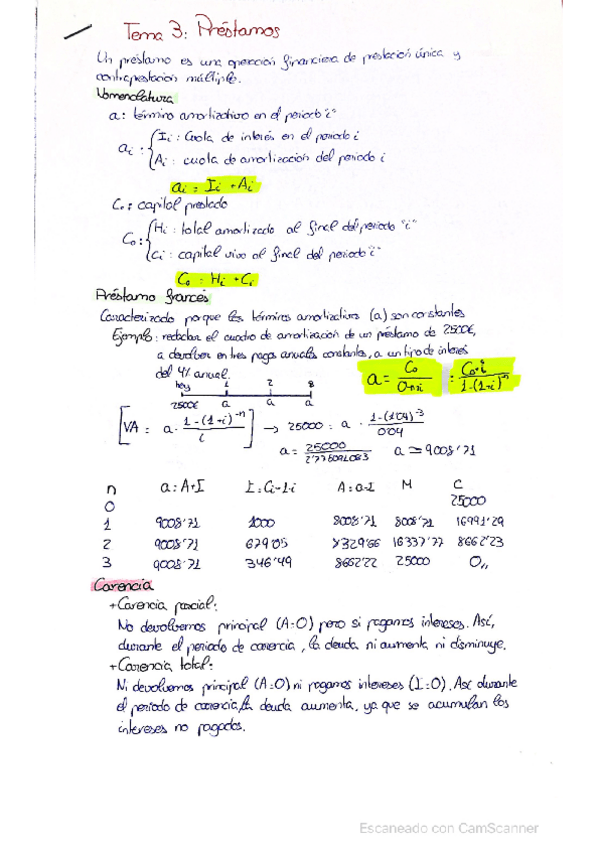 Tema 3: Préstamos
Un préstamo es una operación financiera de prestación única y
contraprestación múltiple.
Nomenclatura
a: término amortizativo en el periodo "i"
ai : { Ii : Cuota de interés en el periodo i
Ai : cuota de amortización del periodo i
ai = Ii + Ai
Co: capital prestado
Co: { Hi : total amortizado al final del periodo "i"
Ci : capital vivo al final del periodo "i"
Co = Hi + Ci
Préstamo francés
Caracterizado porque los términos amortizativos (a) son constantes
Ejemplo: redactar el cuadro de amortización de un préstamo de 25000€,
a devolver en tres pagos anuales constantes, a un tipo de interés
del 4% anual.
a = Co / an¬i = Co·i / 1-(1+i)^-n
hoy 1 2 3
25000€ a a a
[VA = a · 1-(1+i)^-n / i] → 25000 = a · 1-(1'04)^-3 / 0'04
a = 25000 / 2'775091033 a ≃ 9008'71
n a=A+I I=Ci-1·i A=a-I M C
0 25000
1 9008'71 1000 8008'71 8008'71 16991'29
2 9008'71 679'65 8329'06 16337'77 8662'23
3 9008'71 346'49 8662'22 25000 0,,
Carencia
+Carencia parcial:
No devolvemos principal (A=0) pero si pagamos intereses. Así,
durante el periodo de carencia, la deuda ni aumenta ni disminuye.
+Carencia total:
Ni devolvemos principal (A=0) ni pagamos intereses (I=0). Así durante
el periodo de carencia, la deuda aumenta, ya que se acumulan los
intereses no pagados.
Escaneado con CamScanner